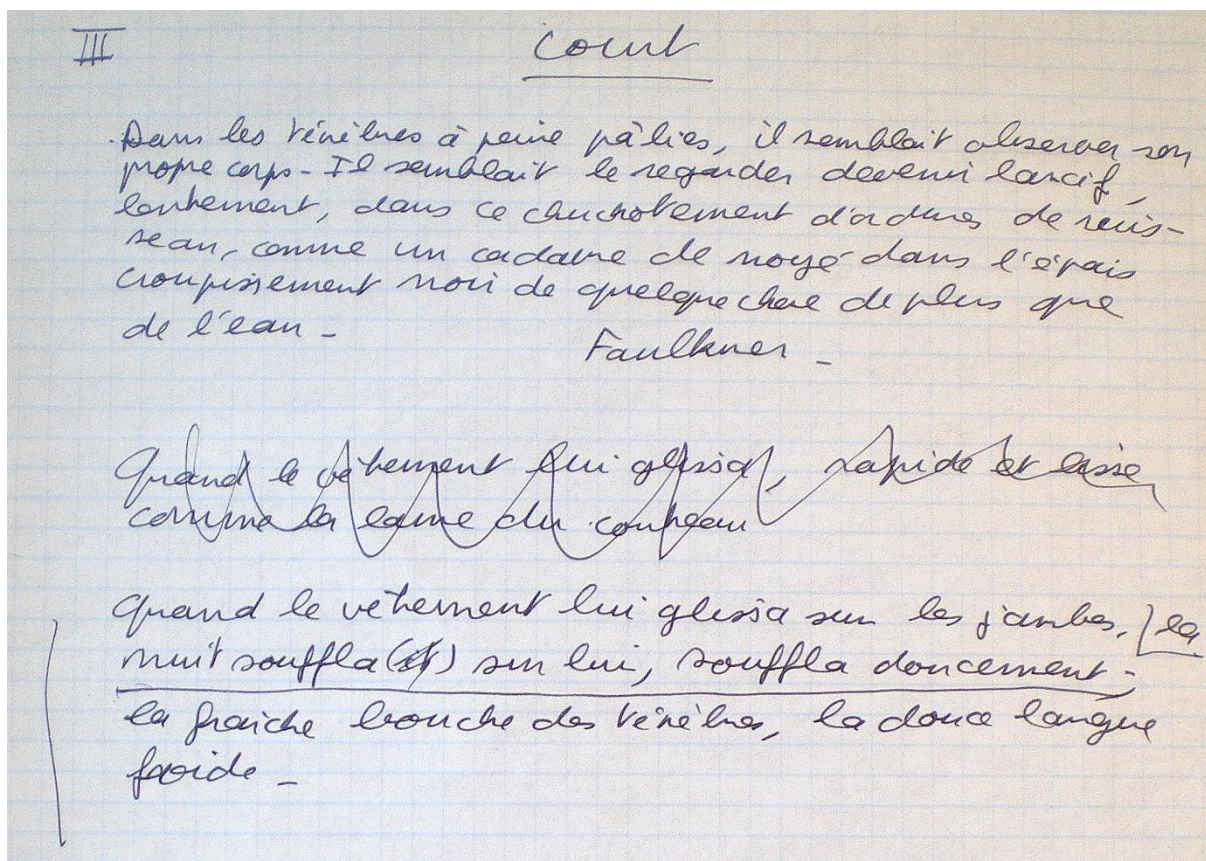 III
Court
Dans les ténèbres à peine pâlies, il semblait observer son
propre corps - Il semblait le regarder devenir lascif,
lentement, dans ce chuchotement d'ordures de ruis-
seau, comme un cadavre de noyé dans l'épais
croupissement noir de quelque chose de plus que
de l'eau -
Faulkner -
Quand le vêtement lui glissa, rapide et lisse
comme la lame du couteau
Quand le vêtement lui glissa sur les jambes, [la
nuit souffla () sur lui, souffla doucement -,
la fraîche bouche des ténèbres, la douce langue
froide -